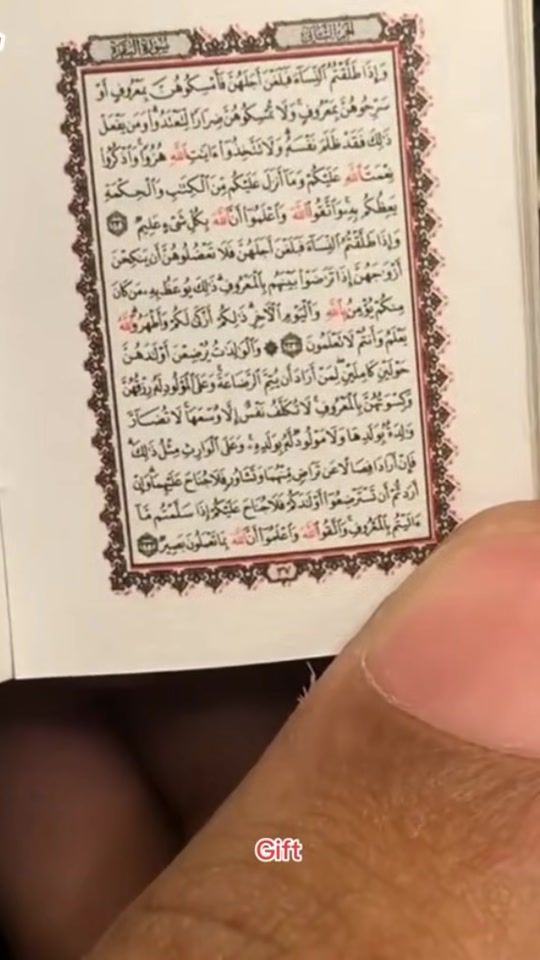 سورة البقرة
الجزء الثاني
وَإِذَا طَلَّقْتُمُ ٱلنِّسَآءَ فَبَلَغْنَ أَجَلَهُنَّ فَأَمْسِكُوهُنَّ بِمَعْرُوفٍ أَوْ
سَرِّحُوهُنَّ بِمَعْرُوفٍ وَلَا تُمْسِكُوهُنَّ ضِرَارًا لِّتَعْتَدُوا۟ وَمَن يَفْعَلْ
ذَٰلِكَ فَقَدْ ظَلَمَ نَفْسَهُۥ وَلَا تَتَّخِذُوٓا۟ ءَايَٰتِ ٱللَّهِ هُزُوًا وَٱذْكُرُوا۟
نِعْمَتَ ٱللَّهِ عَلَيْكُمْ وَمَآ أَنزَلَ عَلَيْكُم مِّنَ ٱلْكِتَٰبِ وَٱلْحِكْمَةِ
يَعِظُكُم بِهِۦ وَٱتَّقُوا۟ ٱللَّهَ وَٱعْلَمُوٓا۟ أَنَّ ٱللَّهَ بِكُلِّ شَىْءٍ عَلِيمٌ ٢٣١
وَإِذَا طَلَّقْتُمُ ٱلنِّسَآءَ فَبَلَغْنَ أَجَلَهُنَّ فَلَا تَعْضُلُوهُنَّ أَن يَنكِحْنَ
أَزْوَٰجَهُنَّ إِذَا تَرَٰضَوْا۟ بَيْنَهُم بِٱلْمَعْرُوفِ ذَٰلِكَ يُوعَظُ بِهِۦ مَن كَانَ
مِنكُمْ يُؤْمِنُ بِٱللَّهِ وَٱلْيَوْمِ ٱلْءَاخِرِ ذَٰلِكُمْ أَزْكَىٰ لَكُمْ وَأَطْهَرُ وَٱللَّهُ
يَعْلَمُ وَأَنتُمْ لَا تَعْلَمُونَ ٢٣٢ ۞ وَٱلْوَٰلِدَٰتُ يُرْضِعْنَ أَوْلَٰدَهُنَّ
حَوْلَيْنِ كَامِلَيْنِ لِمَنْ أَرَادَ أَن يُتِمَّ ٱلرَّضَاعَةَ وَعَلَى ٱلْمَوْلُودِ لَهُۥ رِزْقُهُنَّ
وَكِسْوَتُهُنَّ بِٱلْمَعْرُوفِ لَا تُكَلَّفُ نَفْسٌ إِلَّا وُسْعَهَا لَا تُضَآرَّ
وَٰلِدَةٌۢ بِوَلَدِهَا وَلَا مَوْلُودٌ لَّهُۥ بِوَلَدِهِۦ وَعَلَى ٱلْوَارِثِ مِثْلُ ذَٰلِكَ
فَإِنْ أَرَادَا فِصَالًا عَن تَرَاضٍ مِّنْهُمَا وَتَشَاوُرٍ فَلَا جُنَاحَ عَلَيْهِمَا وَإِنْ
أَرَدتُّمْ أَن تَسْتَرْضِعُوٓا۟ أَوْلَٰدَكُمْ فَلَا جُنَاحَ عَلَيْكُمْ إِذَا سَلَّمْتُم مَّآ
ءَاتَيْتُم بِٱلْمَعْرُوفِ وَٱتَّقُوا۟ ٱللَّهَ وَٱعْلَمُوٓا۟ أَنَّ ٱللَّهَ بِمَا تَعْمَلُونَ بَصِيرٌ ٢٣٣
٣٧
Gift